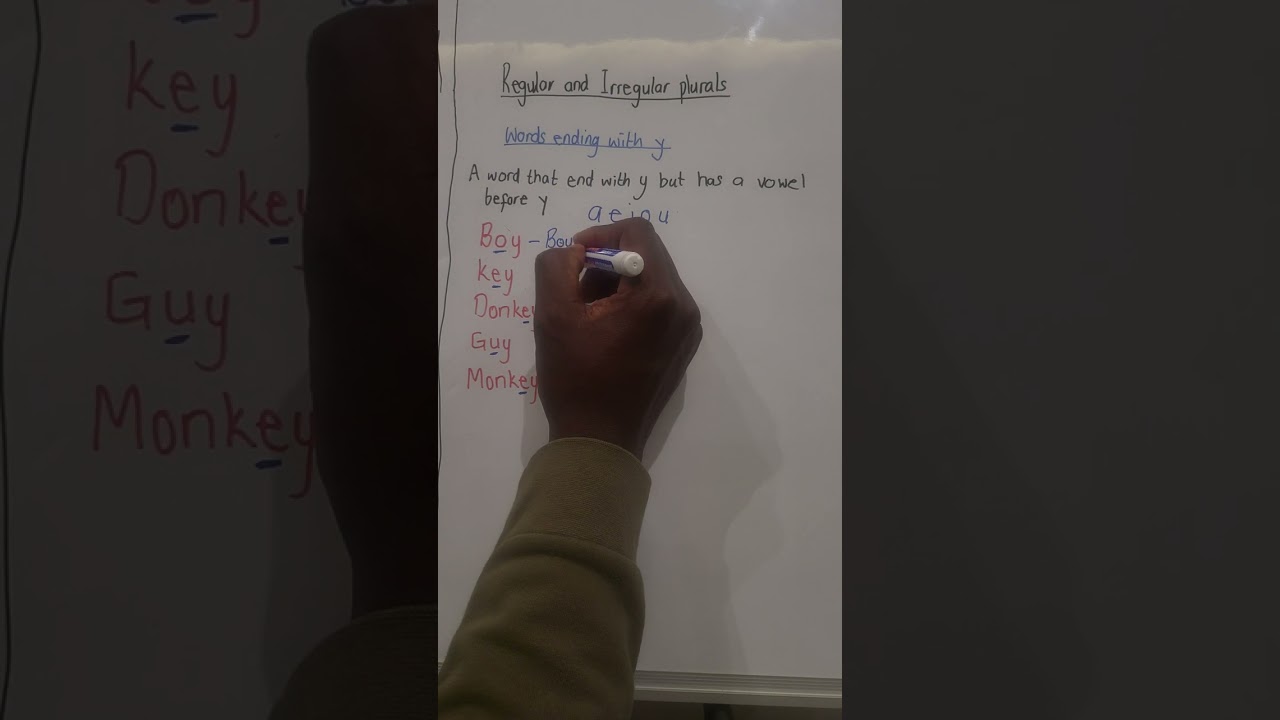 Regular and Irregular plurals
Words ending with y
A word that end with y but has a vowel
before y
a e i o u
Boy - Boy
Key
Donkey
Guy
Monkey